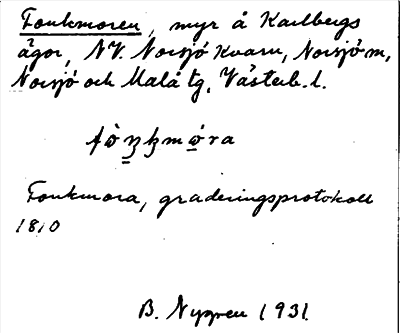 Fonkmoren, myr å Karlbergs
ägor, NV. Norsjö Kvarn, Norsjö m,
Norsjö och Malå tg, Västerb. l.
Fonkmora, graderingsprotokoll
1810
B. Nygren 1931.